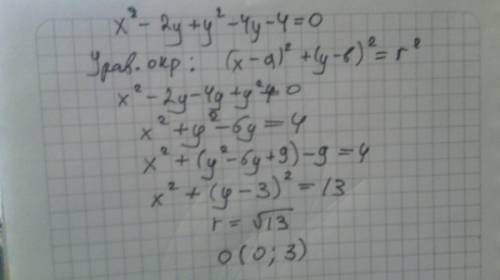 x² - 2y + y² - 4y - 4 = 0
Урав. окр: (x - a)² + (y - b)² = r²
x² - 2y - 4y + y² 4 0
x² + y² - 6y = 4
x² + (y² - 6y + 9) - 9 = 4
x² + (y - 3)² = 13
r = √13
O (0; 3)